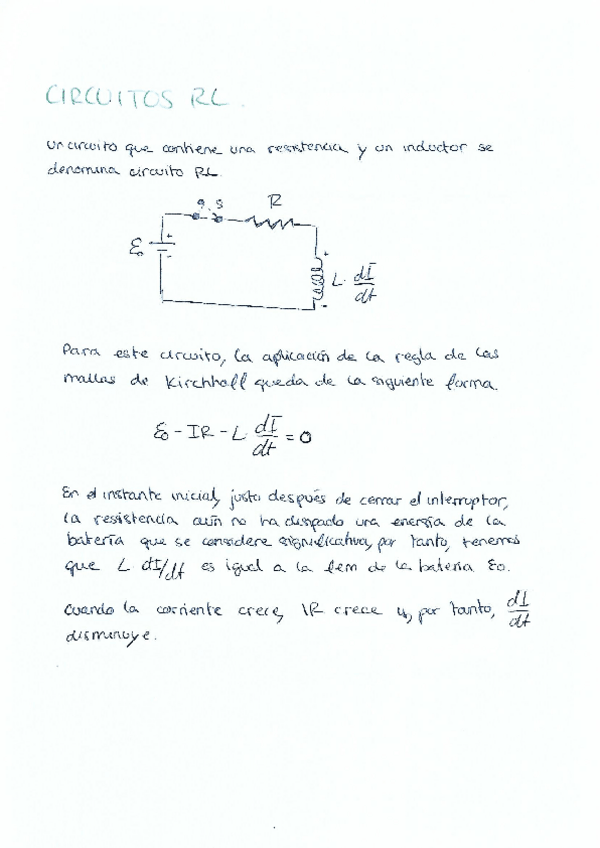 CIRCUITOS RL.
Un circuito que contiene una resistencia y un inductor se
denomina circuito RL.
S R
+
ε₀
-
+
L · dI/dt
-
Para este circuito, la aplicación de la regla de las
mallas de Kirchhoff queda de la siguiente forma.
ε₀ - IR - L · dI/dt = 0
En el instante inicial, justo después de cerrar el interruptor,
la resistencia aún no ha disipado una energía de la
batería que se considere significativa, por tanto, tenemos
que L · dI/dt es igual a la fem de la batería ε₀.
Cuando la corriente crece, IR crece y, por tanto, dI/dt
disminuye.